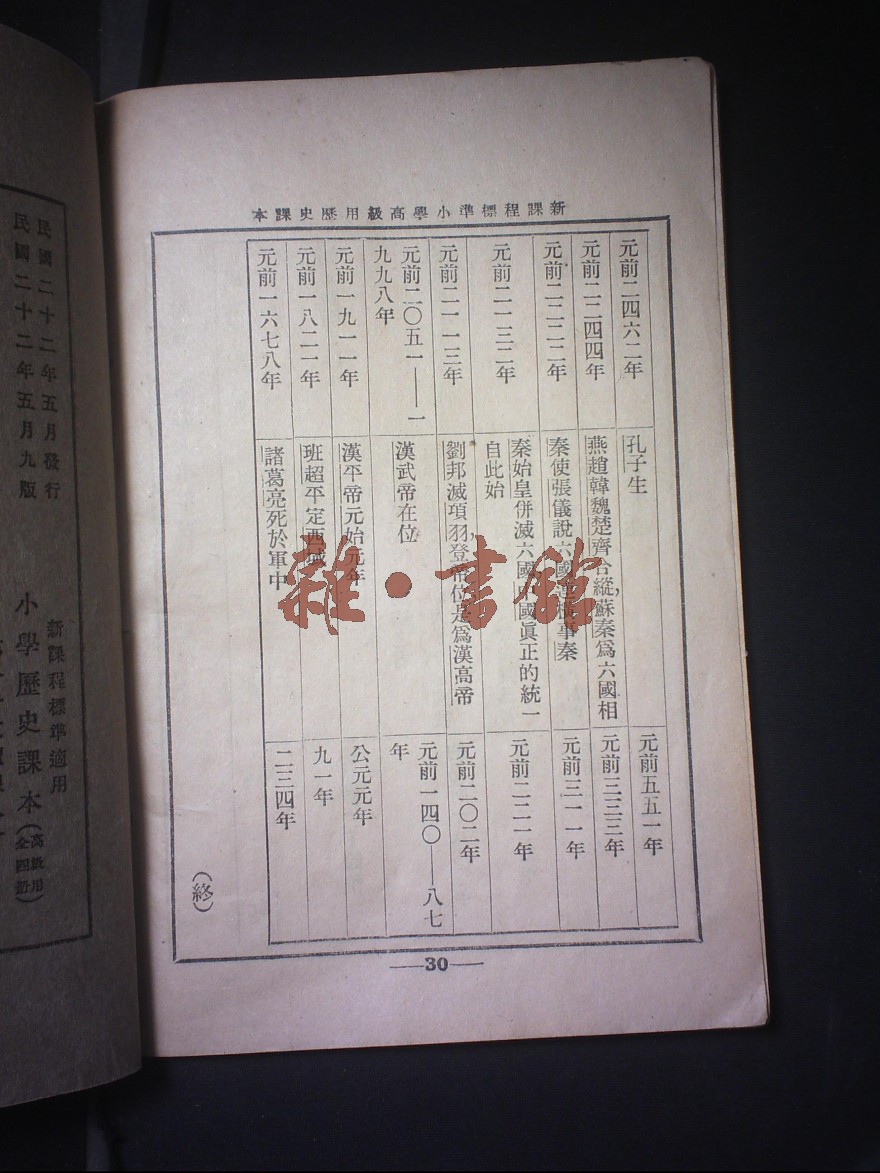 新課程標準小學高級用歷史課本
元前二四六二年 孔子生 元前五五一年
元前二二四四年 燕趙韓魏楚齊合縱，蘇秦爲六國相 元前三三三年
元前二二二二年 秦使張儀說六國連橫事秦 元前三一一年
元前二一三二年 秦始皇併滅六國中國眞正的統一
自此始 元前二二一年
元前二一一三年 劉邦滅項羽，登帝位是爲漢高帝 元前二〇二年
元前二〇五一——一
九九八年 漢武帝在位 元前一四〇—八七
年
元前一九一一年 漢平帝元始元年 公元元年
元前一八二一年 班超平定西域 九一年
元前一六七八年 諸葛亮死於軍中 二三四年
（終）
—30—
雜·書館
民國二十二年五月發行
民國二十二年五月九版
新課程標準適用
小學歷史課本（高級用
全四册）